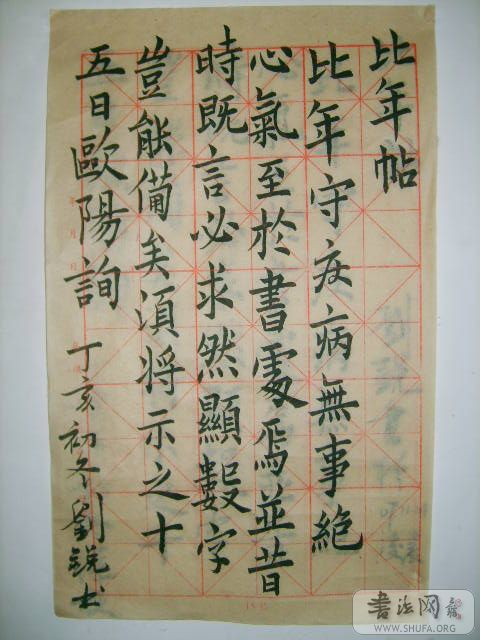 比年帖
比年守疾病無事絶
心氣至於書處焉並昔
時既言必求然顯數字
豈能備矣須将示之十
五日歐陽詢 丁亥初冬劉鋭书
書法网
WWW.SHUFA.ORG